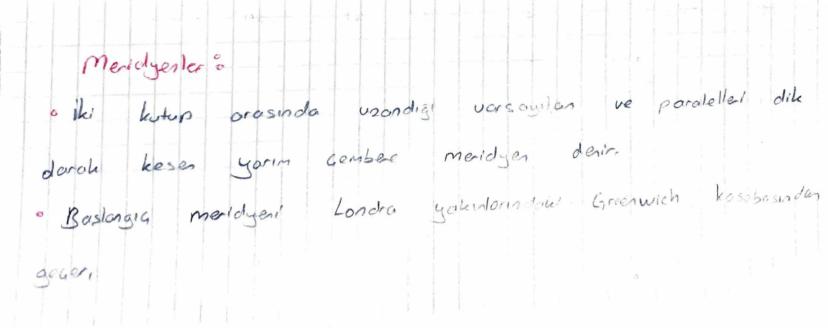 Meridyenler:
• İki kutup arasında uzandığı varsayılan ve paralelleri dik
darak kesen yarım çember meridyen denir.
• Başlangıç meridyeni Londra yakınlarındaki Greenwich kasabasından
geçer.